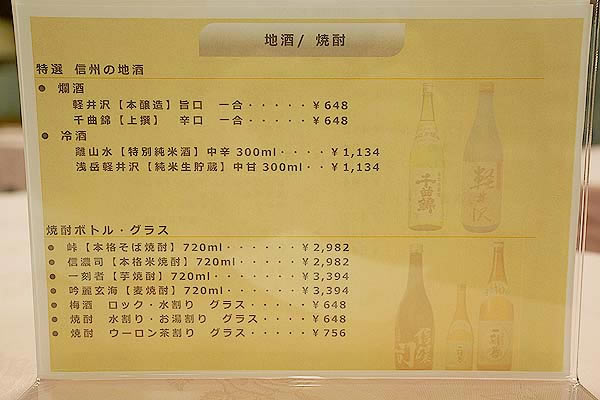 地酒/ 焼酎
特選 信州の地酒
● 爛酒
軽井沢【本醸造】旨口 一合・・・・・¥648
千曲錦【上撰】 辛口 一合・・・・・¥648
● 冷酒
離山水【特別純米酒】中辛300ml・・・¥1,134
浅岳軽井沢【純米生貯蔵】中甘300ml・・¥1,134
焼酎ボトル・グラス
● 峠【本格そば焼酎】720ml・・・・・・¥2,982
● 信濃司【本格米焼酎】720ml・・・・・¥2,982
● 一刻者【芋焼酎】720ml・・・・・・・¥3,394
● 吟麗玄海【麦焼酎】720ml・・・・・・¥3,394
● 梅酒 ロック・水割り グラス・・・・¥648
● 焼酎 水割り・お湯割り グラス・・・・¥648
● 焼酎 ウーロン茶割り グラス・・・・・¥756
千曲錦
軽井沢